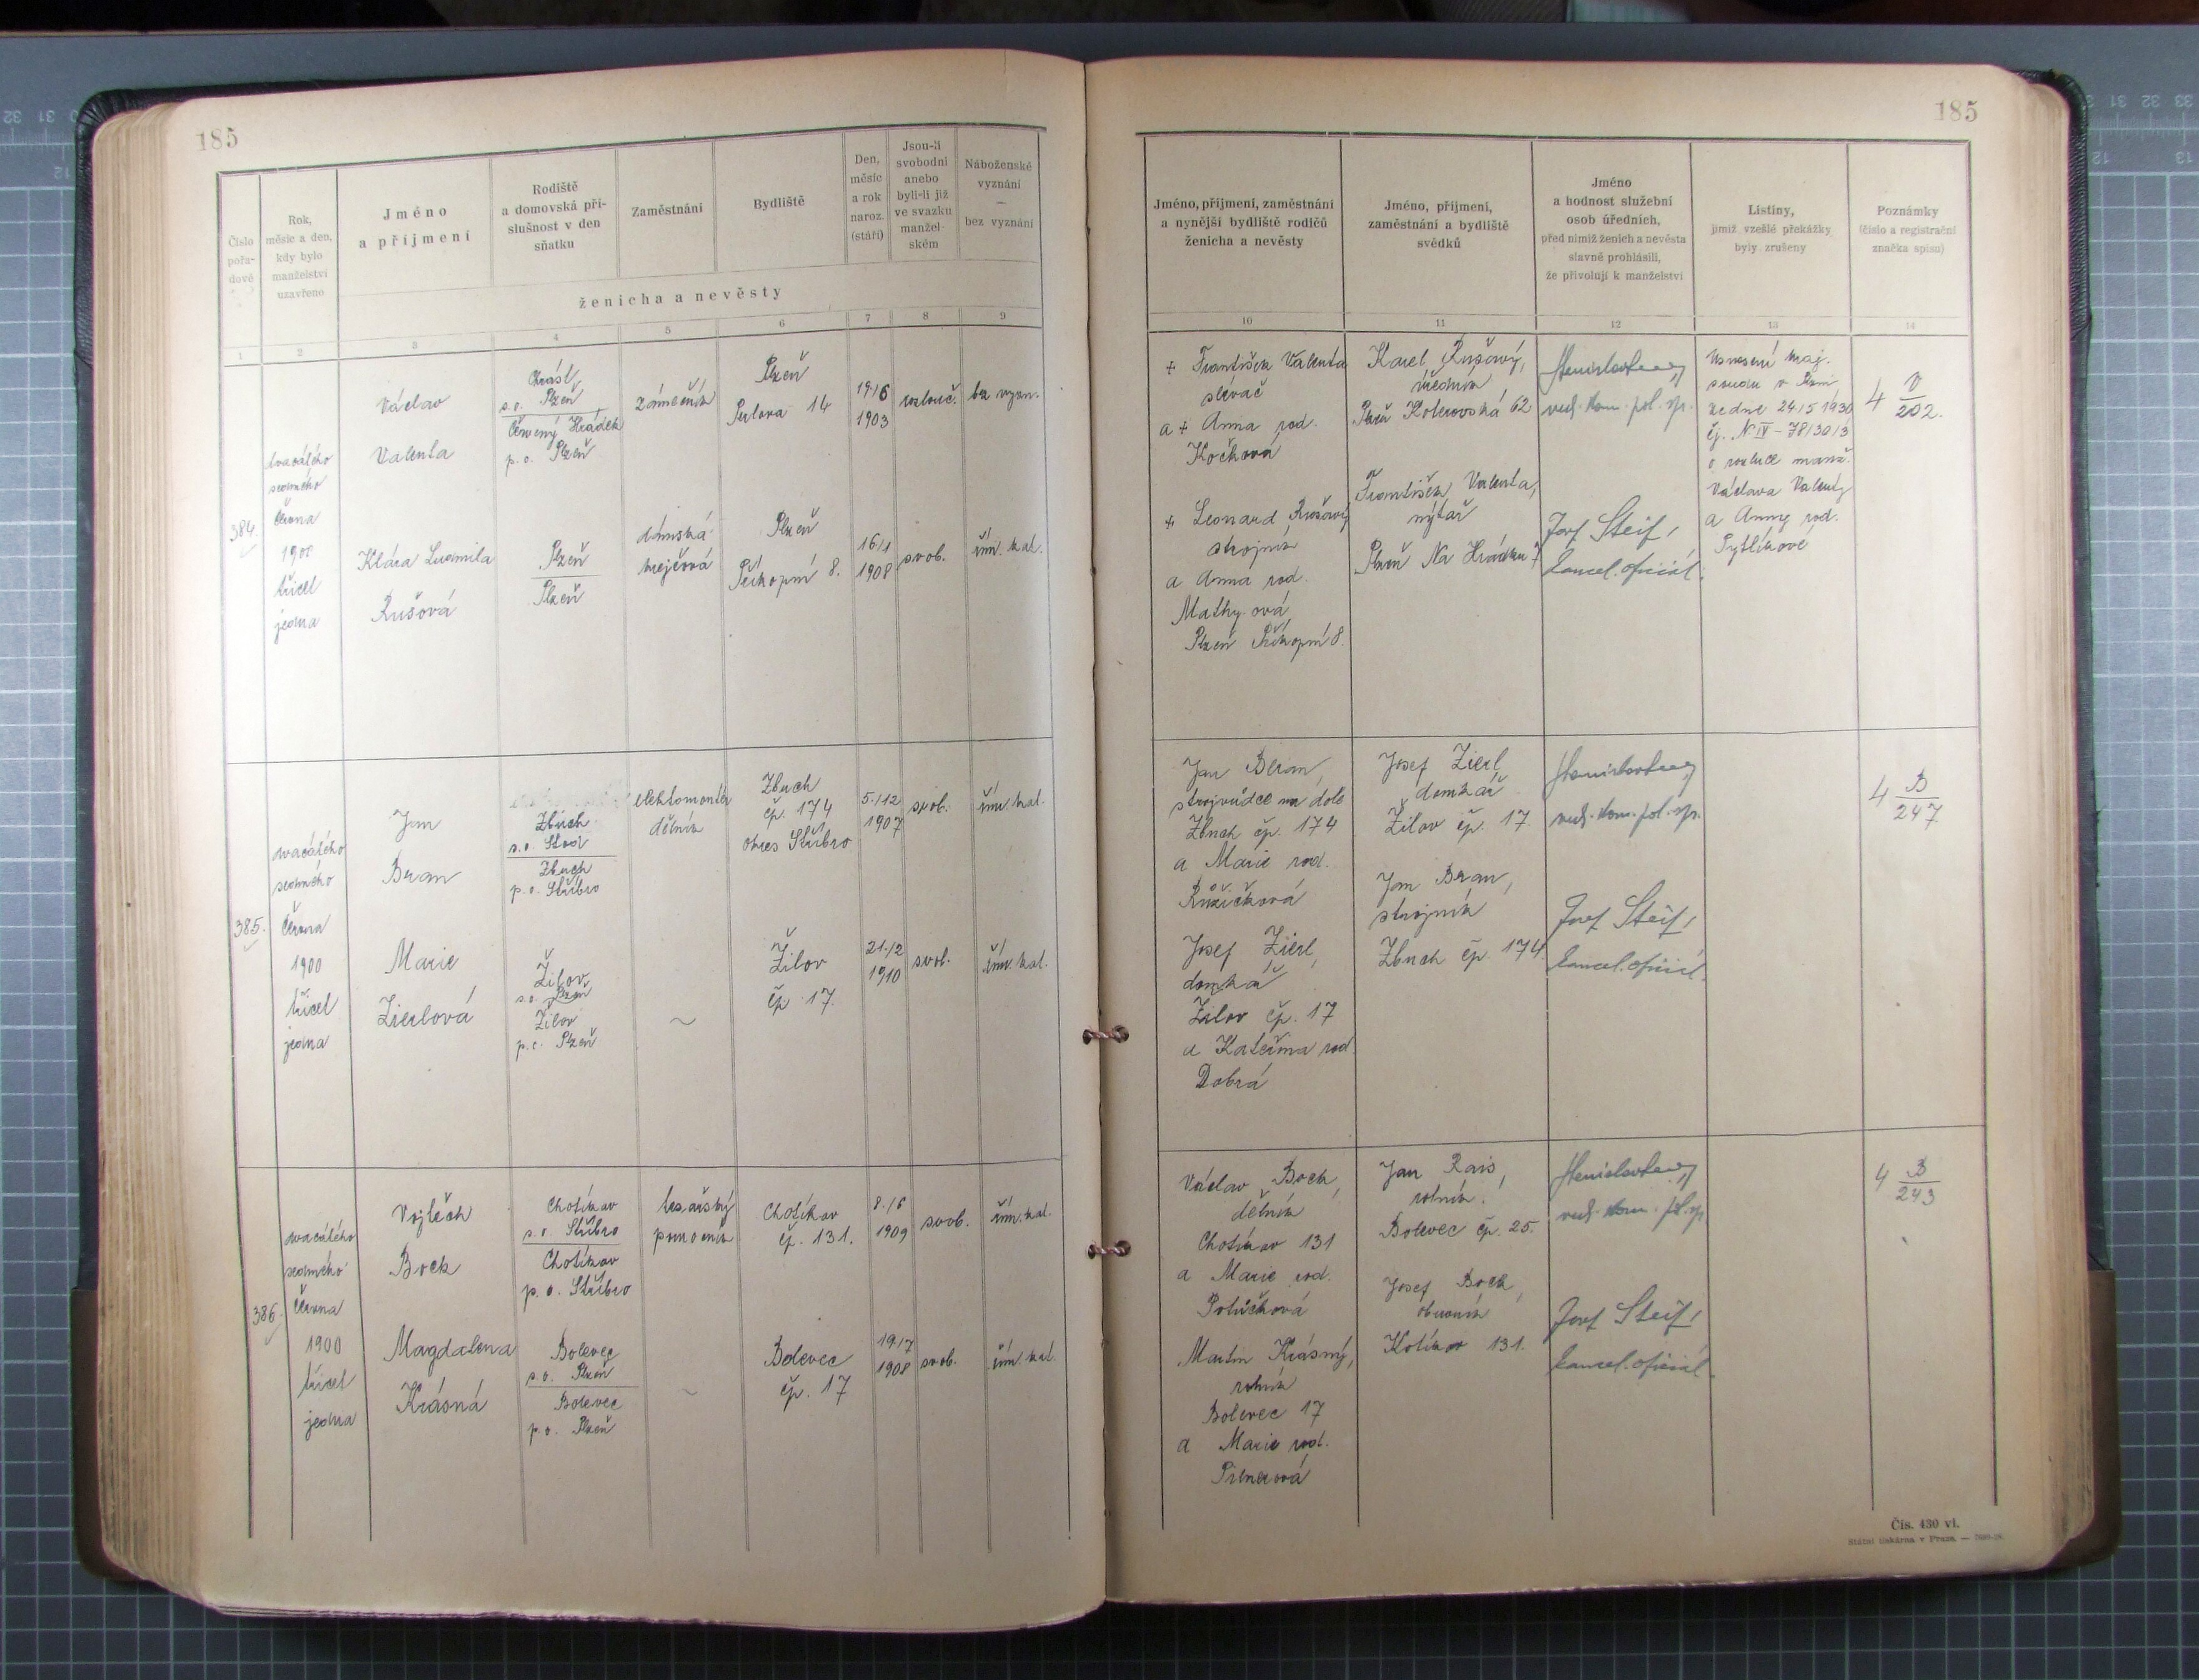 185
185
Číslo
pořa-
dové
Rok,
měsíc a den,
kdy bylo
manželství
uzavřeno
Jméno
a příjmení
Rodiště
a domovská pří-
slušnost v den
sňatku
Zaměstnání
Bydliště
Den,
měsíc
a rok
naroz.
(stáří)
Jsou-li
svobodni
anebo
byli-li již
ve svazku
manžel-
ském
Náboženské
vyznání
—
bez vyznání
ženicha a nevěsty
1 2 3 4 5 6 7 8 9
Jméno, příjmení, zaměstnání
a nynější bydliště rodičů
ženicha a nevěsty
Jméno, příjmení,
zaměstnání a bydliště
svědků
Jméno
a hodnost služební
osob úředních,
před nimiž ženich a nevěsta
slavně prohlásili,
že přivolují k manželství
Listiny,
jimiž vzešlé překážky
byly zrušeny
Poznámky
(číslo a registrační
značka spisu)
10 11 12 13 14
384.
dvacátého
sedmého
června
1900
třicet
jedna
Václav
Valenta
Chrást
s.o. Plzeň
Červený Hrádek
p.o. Plzeň
zámečník
Plzeň
14
19./6
1903
rozluč.
bez vyzn.
Klára Ludmila
Rušová
Plzeň
Plzeň
dámská
krejčová
Plzeň
Příkopní 8.
16/1
1908
svob.
řím. kat.
+ František Valenta
slévač
a + Anna rod.
Kočková
+ Leonard
strojník
a Anna rod.
Mathy ová
Plzeň Příkopní 8.
Karel
úředník
Plzeň Koterovská 62
František Valenta,
nýtař
Plzeň Na Hrádku
rad. kom. pol. spr.
Josef Steif,
kancel. oficiál.
Usnesení kraj.
soudu v Plzni
ze dne 24./5 1930
čj. N IV - 78/30/3
o rozluce manž.
Václava Valenty
a Anny rod.
Pytlíkové
4 V
202.
385.
dvacátého
sedmého
června
1900
třicet
jedna
Jan
Beran
Zbůch
s.o. Stod
Zbuch
p.o. Stříbro
elektromontér
dělník
Zbuch
čp. 174
okres Stříbro
5./12
1907
svob.
řím. kat.
Marie
Zierlová
Žilov
s.o. Plzeň
Žilov
p.o. Plzeň
~
Žilov
čp. 17.
21./2
1910
svob.
řím. kat.
Jan Beran,
strojvůdce na dole
Zbuch čp. 174
a Marie rod.
Růžičková
Josef Zierl,
domkář
Žilov čp. 17
a Kateřina rod.
Dobrá
Josef Zierl
domkář
Žilov čp. 17.
Jan Beran,
strojník
Zbuch čp. 174.
rad. kom. pol. spr.
Josef Steif,
kancel. oficiál.
4 B
247
386.
dvacátého
sedmého
června
1900
třicet
jedna
Vojtěch
Bock
Chotíkov
s.o. Stříbro
Chotíkov
p.o. Stříbro
tesařský
pomocník
Chotíkov
čp. 131.
8./6
1909
svob.
řím. kat.
Magdalena
Krásná
Bolevec
s.o. Plzeň
Bolevec
p.o. Plzeň
~
Bolevec
čp. 17
19./7
1908
svob.
řím. kat.
Václav Bock,
dělník
Chotíkov 131
a Marie rod.
Potůčková
Martin Krásný,
rolník
Bolevec 17
a Marie rod.
Pitnerová
Jan Rais,
rolník.
Bolevec čp. 25.
Josef Bock,
obuvník
Kotíkov 131.
rad. kom. pol. spr.
Josef Steif,
kancel. oficiál.
4 B
243
Čís. 430 vl.
Státní tiskárna v Praze. —